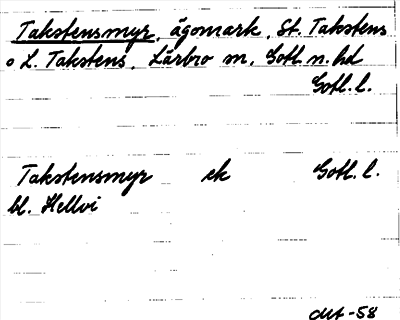 Takstensmyr, ägomark, St. Takstens
o L. Takstens, Lärbro sn, Gotl. n. hd
Gotl. l.
Takstensmyr ek Gotl. l.
bl. Hellvi
-58